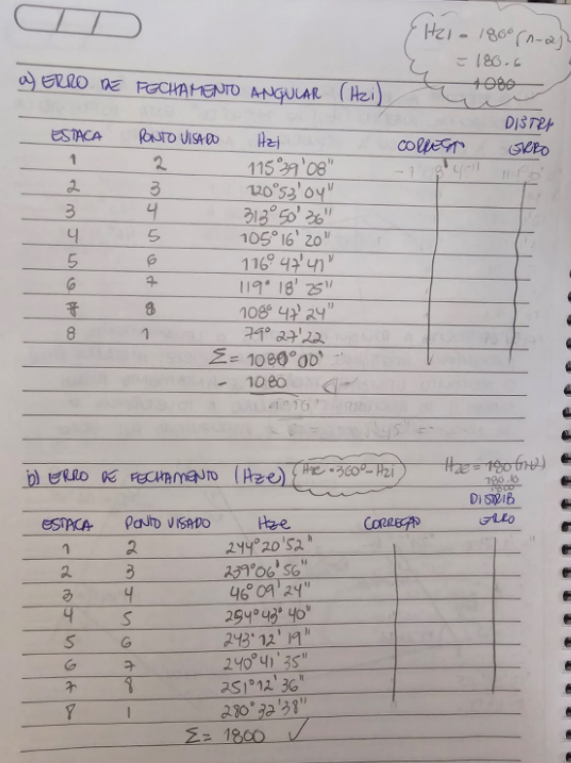 Hzi = 180° (n-2)
= 180.6
1080
a) ERRO DE FECHAMENTO ANGULAR (Hzi)
DISTRI
ESTACA PONTO VISADO Hzi CORREÇÃ ERRO
1 2 115°39'08"
2 3 120°53'04"
3 4 313°50'36"
4 5 105°16'20"
5 6 116°47'41"
6 7 119°18'25"
7 8 108°47'24"
8 1 79°27'22
Σ = 1080°00'
- 1080
b) ERRO DE FECHAMENTO (Hze) Hze = 360° - Hzi Hze = 180(n+2)
180.10
1800
DISTRIB
ESTACA PONTO VISADO Hze CORREÇÃO ERRO
1 2 244°20'52"
2 3 239°06'56"
3 4 46°09'24"
4 5 254°43°40"
5 6 243°12'19"
6 7 240°41'35"
7 8 251°12'36"
8 1 280°32'38"
Σ = 1800 ✓